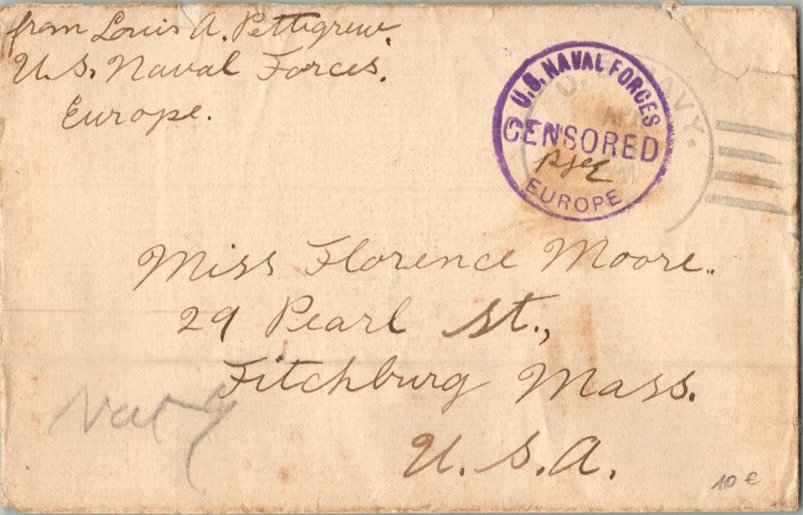 from Louis A. Pettigrew.
U.S. Naval Forces.
Europe.
U.S. NAVAL FORCES
CENSORED
EUROPE
NAVY.
Miss Florence Moore.
29 Pearl St.,
Fitchburg Mass.
U.S.A.
Navy
10 e